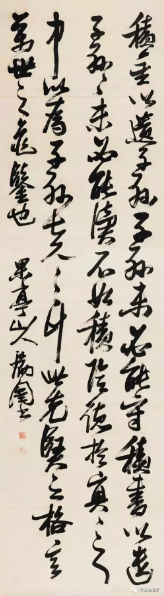 積金以遺子孫子孫未必能守積書以遺
子孫々未必能讀不如積陰德於冥々之
中以為子孫長久之計此先賢之格言
萬世之龜鑒也 果亭山人